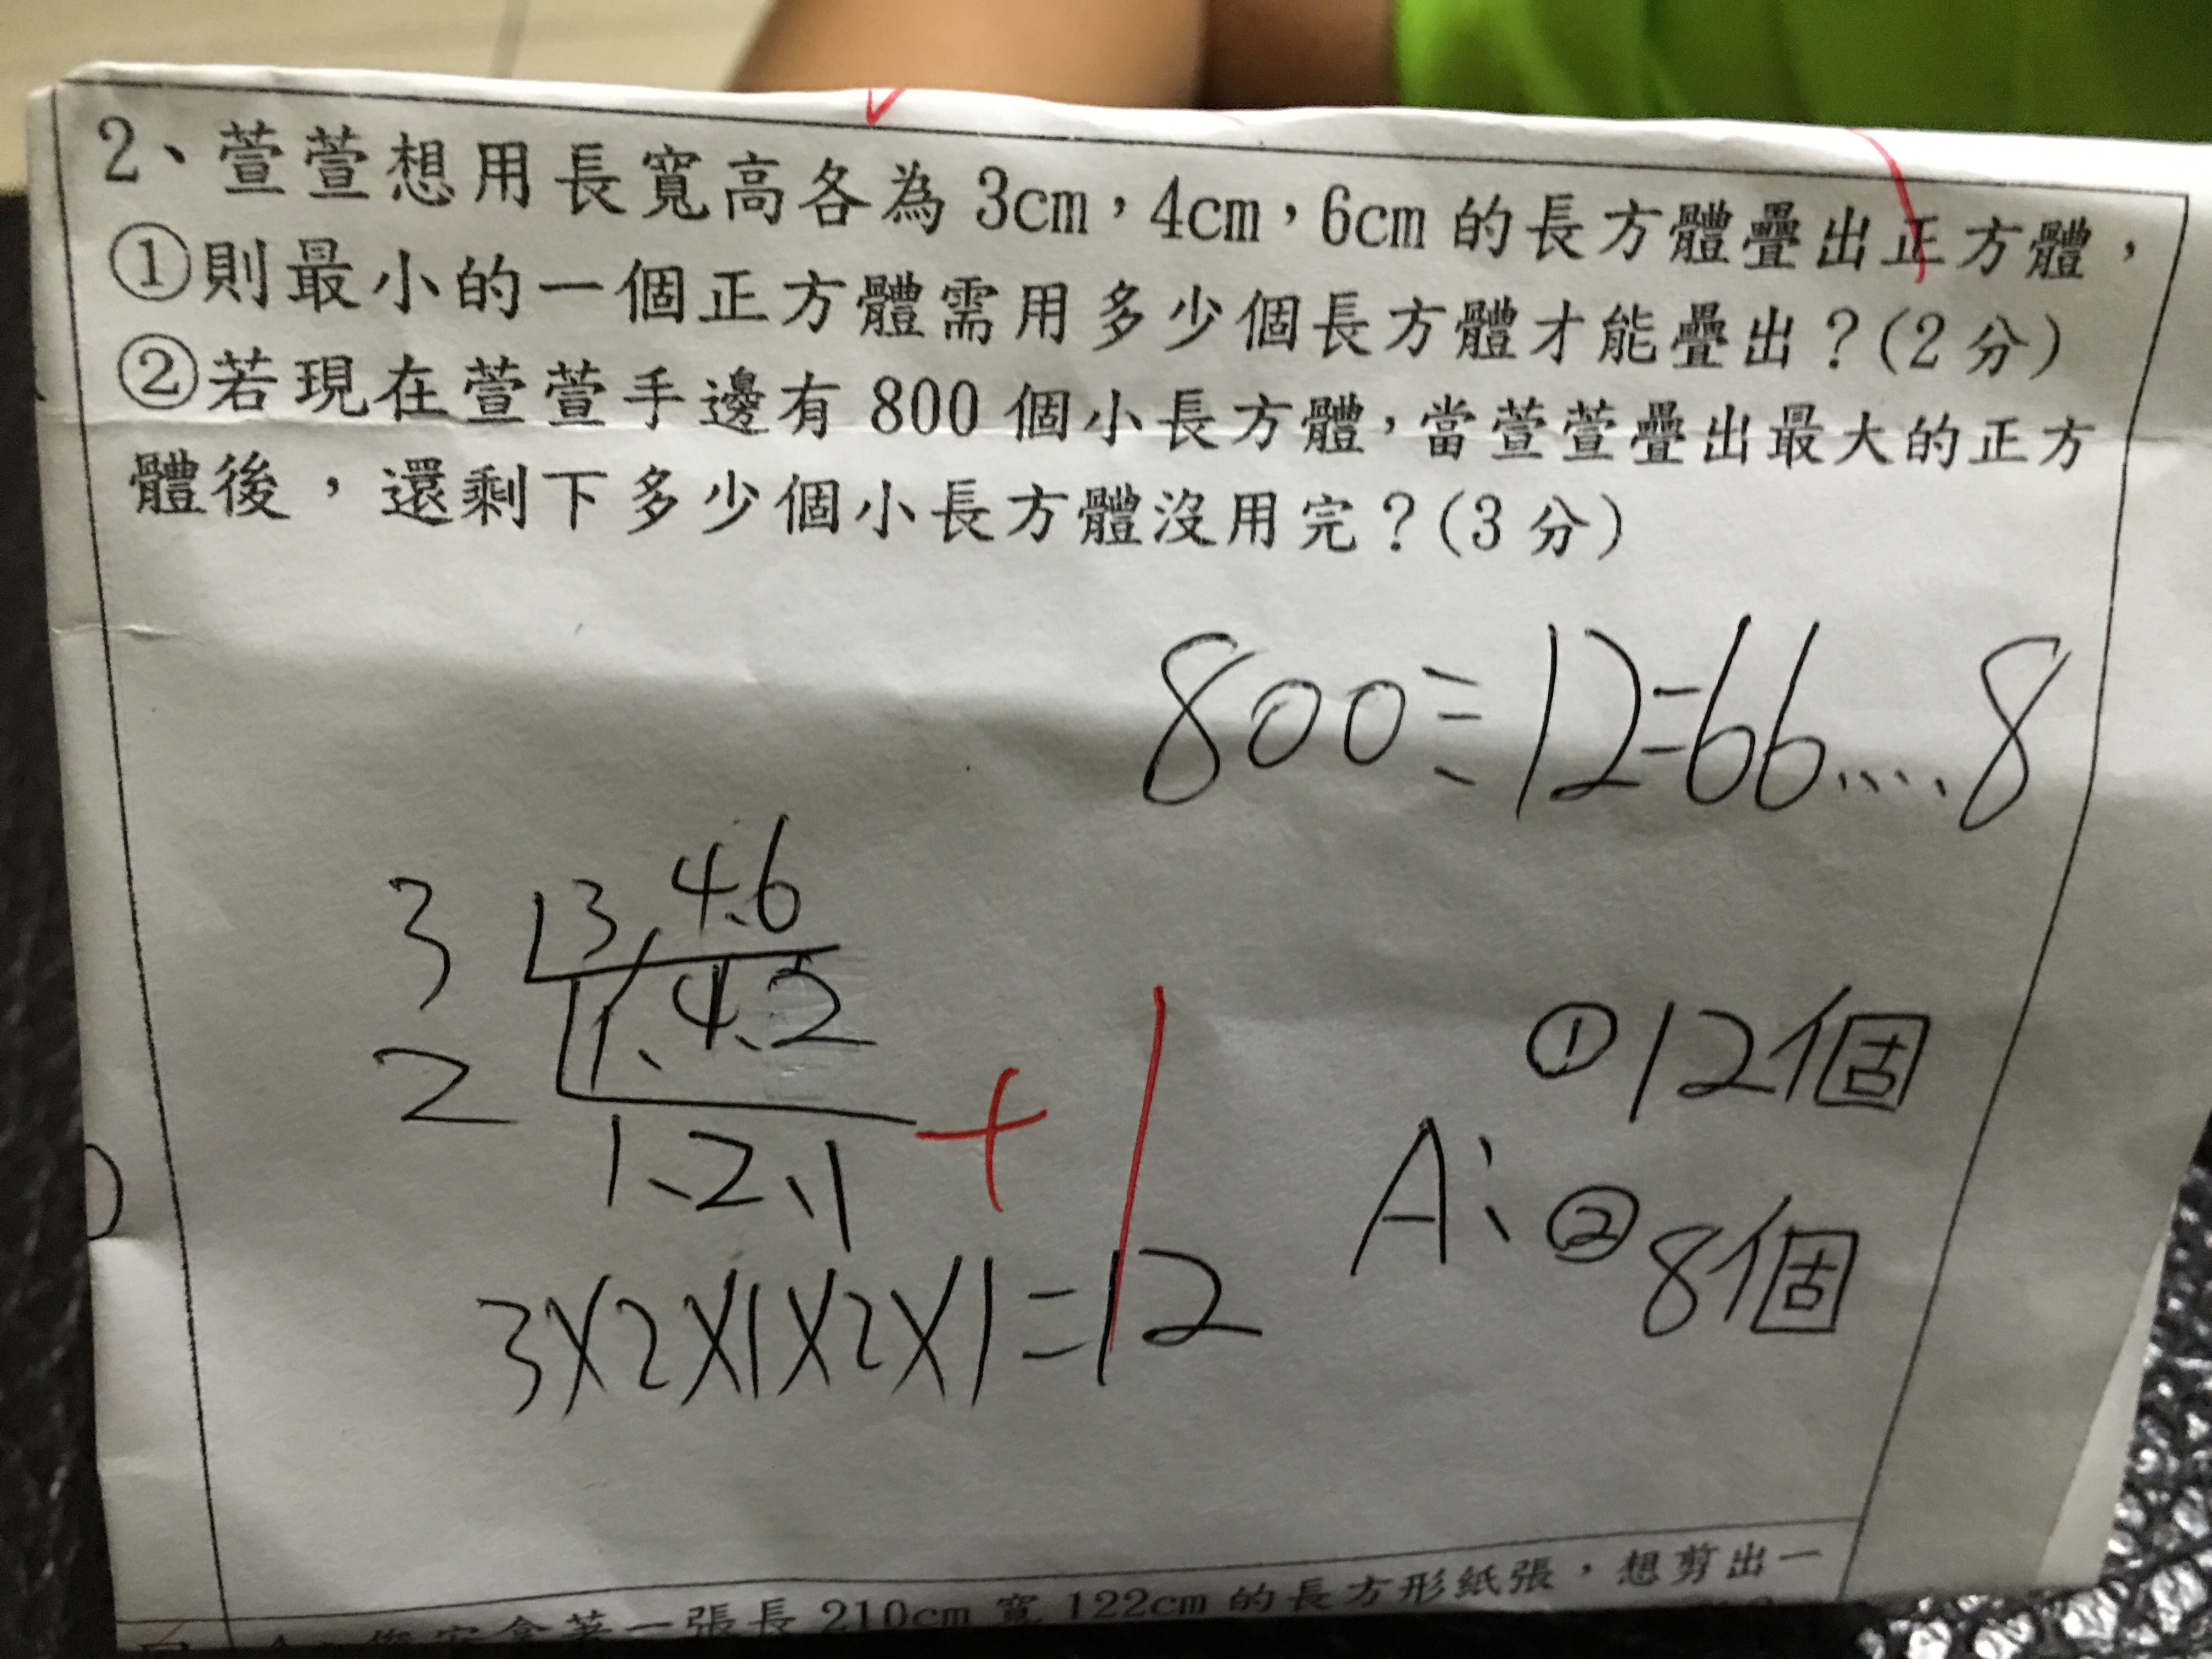 2、萱萱想用長寬高各為3cm，4cm，6cm的長方體疊出正方體，
①則最小的一個正方體需用多少個長方體才能疊出？(2分)
②若現在萱萱手邊有800個小長方體，當萱萱疊出最大的正方
體後，還剩下多少個小長方體沒用完？(3分)
800÷12=66....8
3 3、4、6
2 1、4、2
1、2、1
+1
3×2×1×2×1=12
①12個
A：②8個
一張長210cm寬122cm的長方形紙張，想剪出一